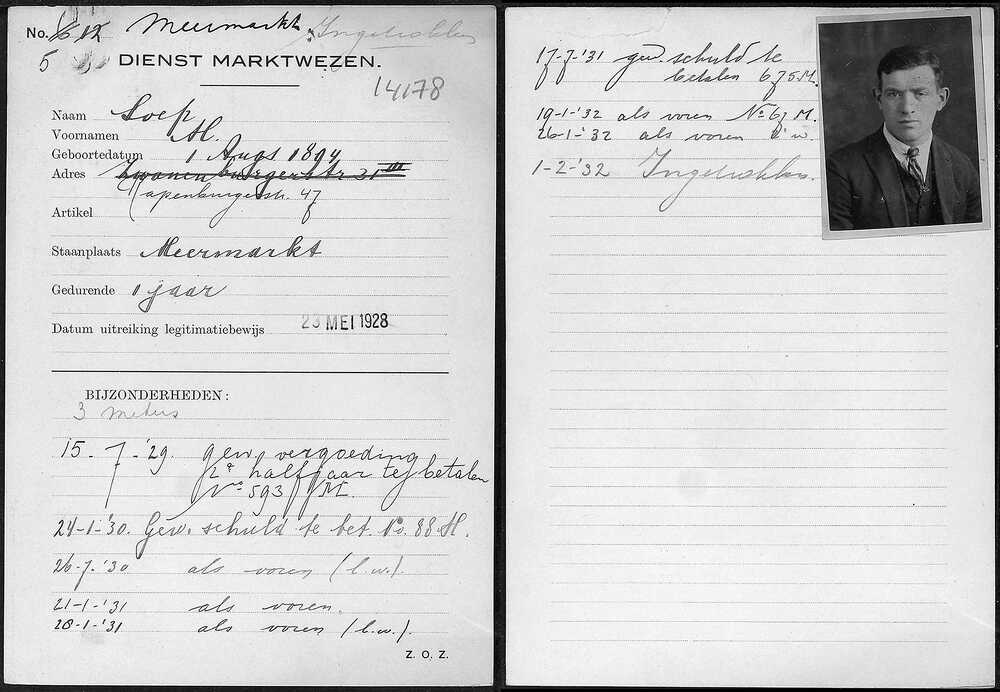 No. 12 Meermarkt Ingetrokken
5
DIENST MARKTWEZEN.
14178
Naam Soep
Voornamen M.
Geboortedatum 1 Augs 1894
Adres Zwanenburgerstr 31 III
Rapenburgerstr. 47
Artikel
Staanplaats Meermarkt
Gedurende 1 jaar
Datum uitreiking legitimatiebewijs 23 MEI 1928
BIJZONDERHEDEN:
3 meters
15-7-'29. gew. vergoeding
2e halfjaar te betalen
No 593 M.
24-1-'30. Gew. schuld te bet. No. 88 M.
26-7-'30 als voren (l.w.).
21-1-'31 als voren.
28-1-'31 als voren (l.w.).
Z. O. Z.
17-7-'31 gew. schuld te
betalen 675 M.
19-1-'32 als voren No 6 M.
26-1-'32 als voren l.w.
1-2-'32 Ingetrokken.